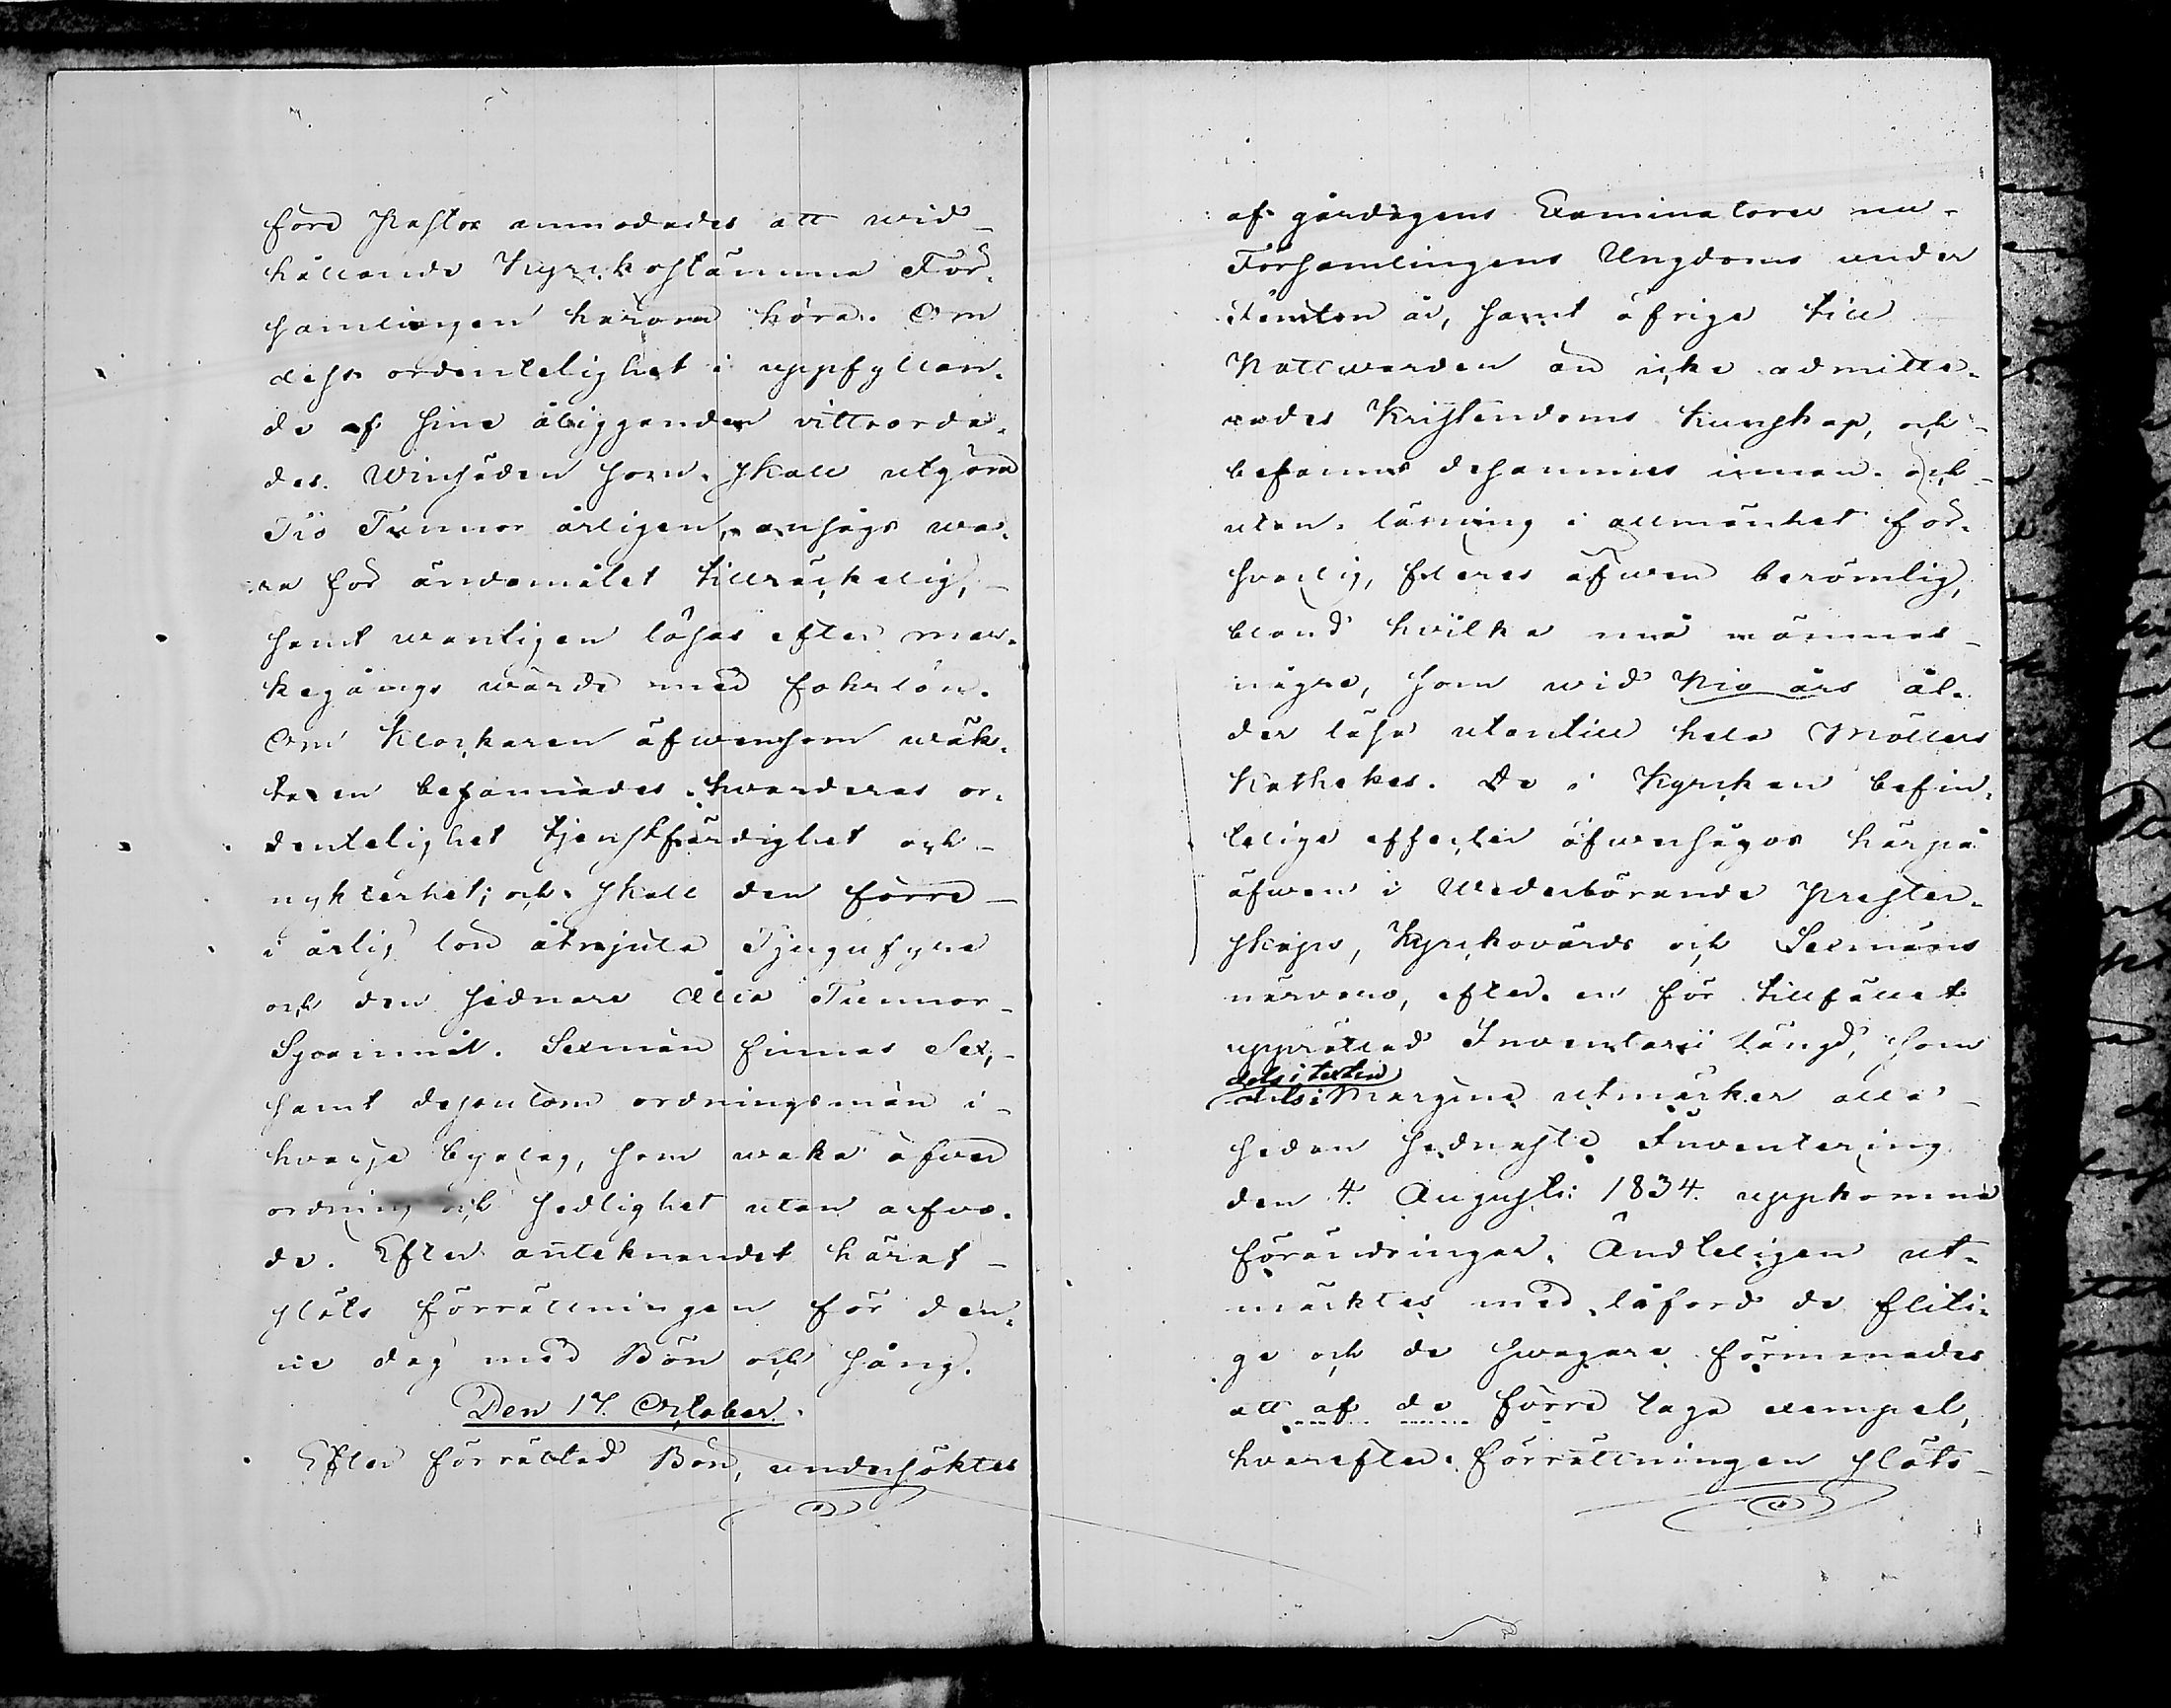 före Pastor anmodades att wid
hållande Kyrckostämma För-
samlingen härom höra. Om
dess ordentelighet i uppfyllan-
de af sine åligganden vittnorda-
des. Winsäden som skall utgöra
Tio Tunnor årligen, ansågs wa-
ra för ändamålet tillräckelig,
samt wanligen löses efter mar-
kegångs wärde med forlön.
Om Klockaren äfwensom wäk-
taren befannades hwarderas or-
dentelighet tjenstfärdighet och
nykterhet; och skall den förre
i årlig lön åtnjuta Tjugufyra
och den sednare Åtta Tunnor
Spannmål. Sexmän finnas Sex,
samt dessutom ordningsmän i
hvarje byalag, som waka öfver
ordning och sedlighet utan arfvo-
de. Efter antecknandet häraf
slöts förrättningen för den-
ne dag med Bön och sång.
Den 17. October.
Efter förrättad Bön, undersöktes
af gårdagens Examinatorer nu
Församlingens Ungdoms under
femton år, samt öfrige till
Nattwarden än icke admitte-
rades Kristendoms Kunskap, och
befanns desammes innan- och
utan- läsning i allmänhet för-
svarlig, fleres äfwen berömlig,
bland hvilka må nämnas
någre, som wid Nio års ål-
der läsa utantill hela Möllers
Kathekes. De i Kyrckan befin-
telige effecter öfwersågos härpå
äfwen i Wederbörande Prester-
skaps, Kyrckovärds och Sexmäns
närvaro, efter en för tillfället
upprättad Inventarii längd, som
dels i texten
dels i Margine utmärker alla
sedan sednaste Inventering
den 4. Augusti 1834. uppkomne
förändringar. Ändteligen ut-
märktes med låford de fliti-
ge och de swagare förmanades
att af de förre taga exempel,
hvarefter Förrättningen slöts